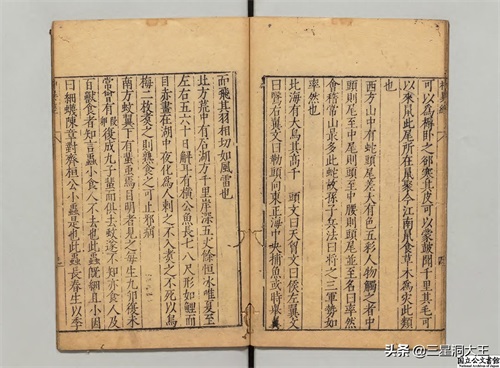 可以為褥臥之却寒其皮可以蒙鼓聞千里其毛可
以來鼠此尾所在鼠聚今江南鼠食草木為災此類
也
西方山中有蛇頭尾差大有色五彩人物觸之者中
頭則尾至中尾則頭至中腰則頭尾並至名曰率然
會稽常山最多此蛇故孫子兵法曰將之三軍勢如
率然也
北海有大鳥其高千 頭文曰天胷文曰侯左翼文
曰鷖右翼文曰勒頭向東正海中央捕魚或時舉翼
而飛其羽相切如風雷也
北方荒中有石湖方千里岸深五丈餘恒氷唯夏至
左右五六十日解耳有橫公魚長七八尺形如鯉而
目赤晝在湖中夜化為人刺之不入煮之不死以烏
梅二枚煮之則熟食之可止邪病
南方蚊翼下有蜚蟲焉目明者見之每生九卵復未
嘗有 復成九子蜚而俱去蚊遂不知亦食人及
百獸食者知言蟲小食人不去也此蟲既細且小因
曰細蠛陳章對齊桓公小蟲是也此蟲長春生以季
头条 @三星洞大王
国立公文書館
National Archives of Japan